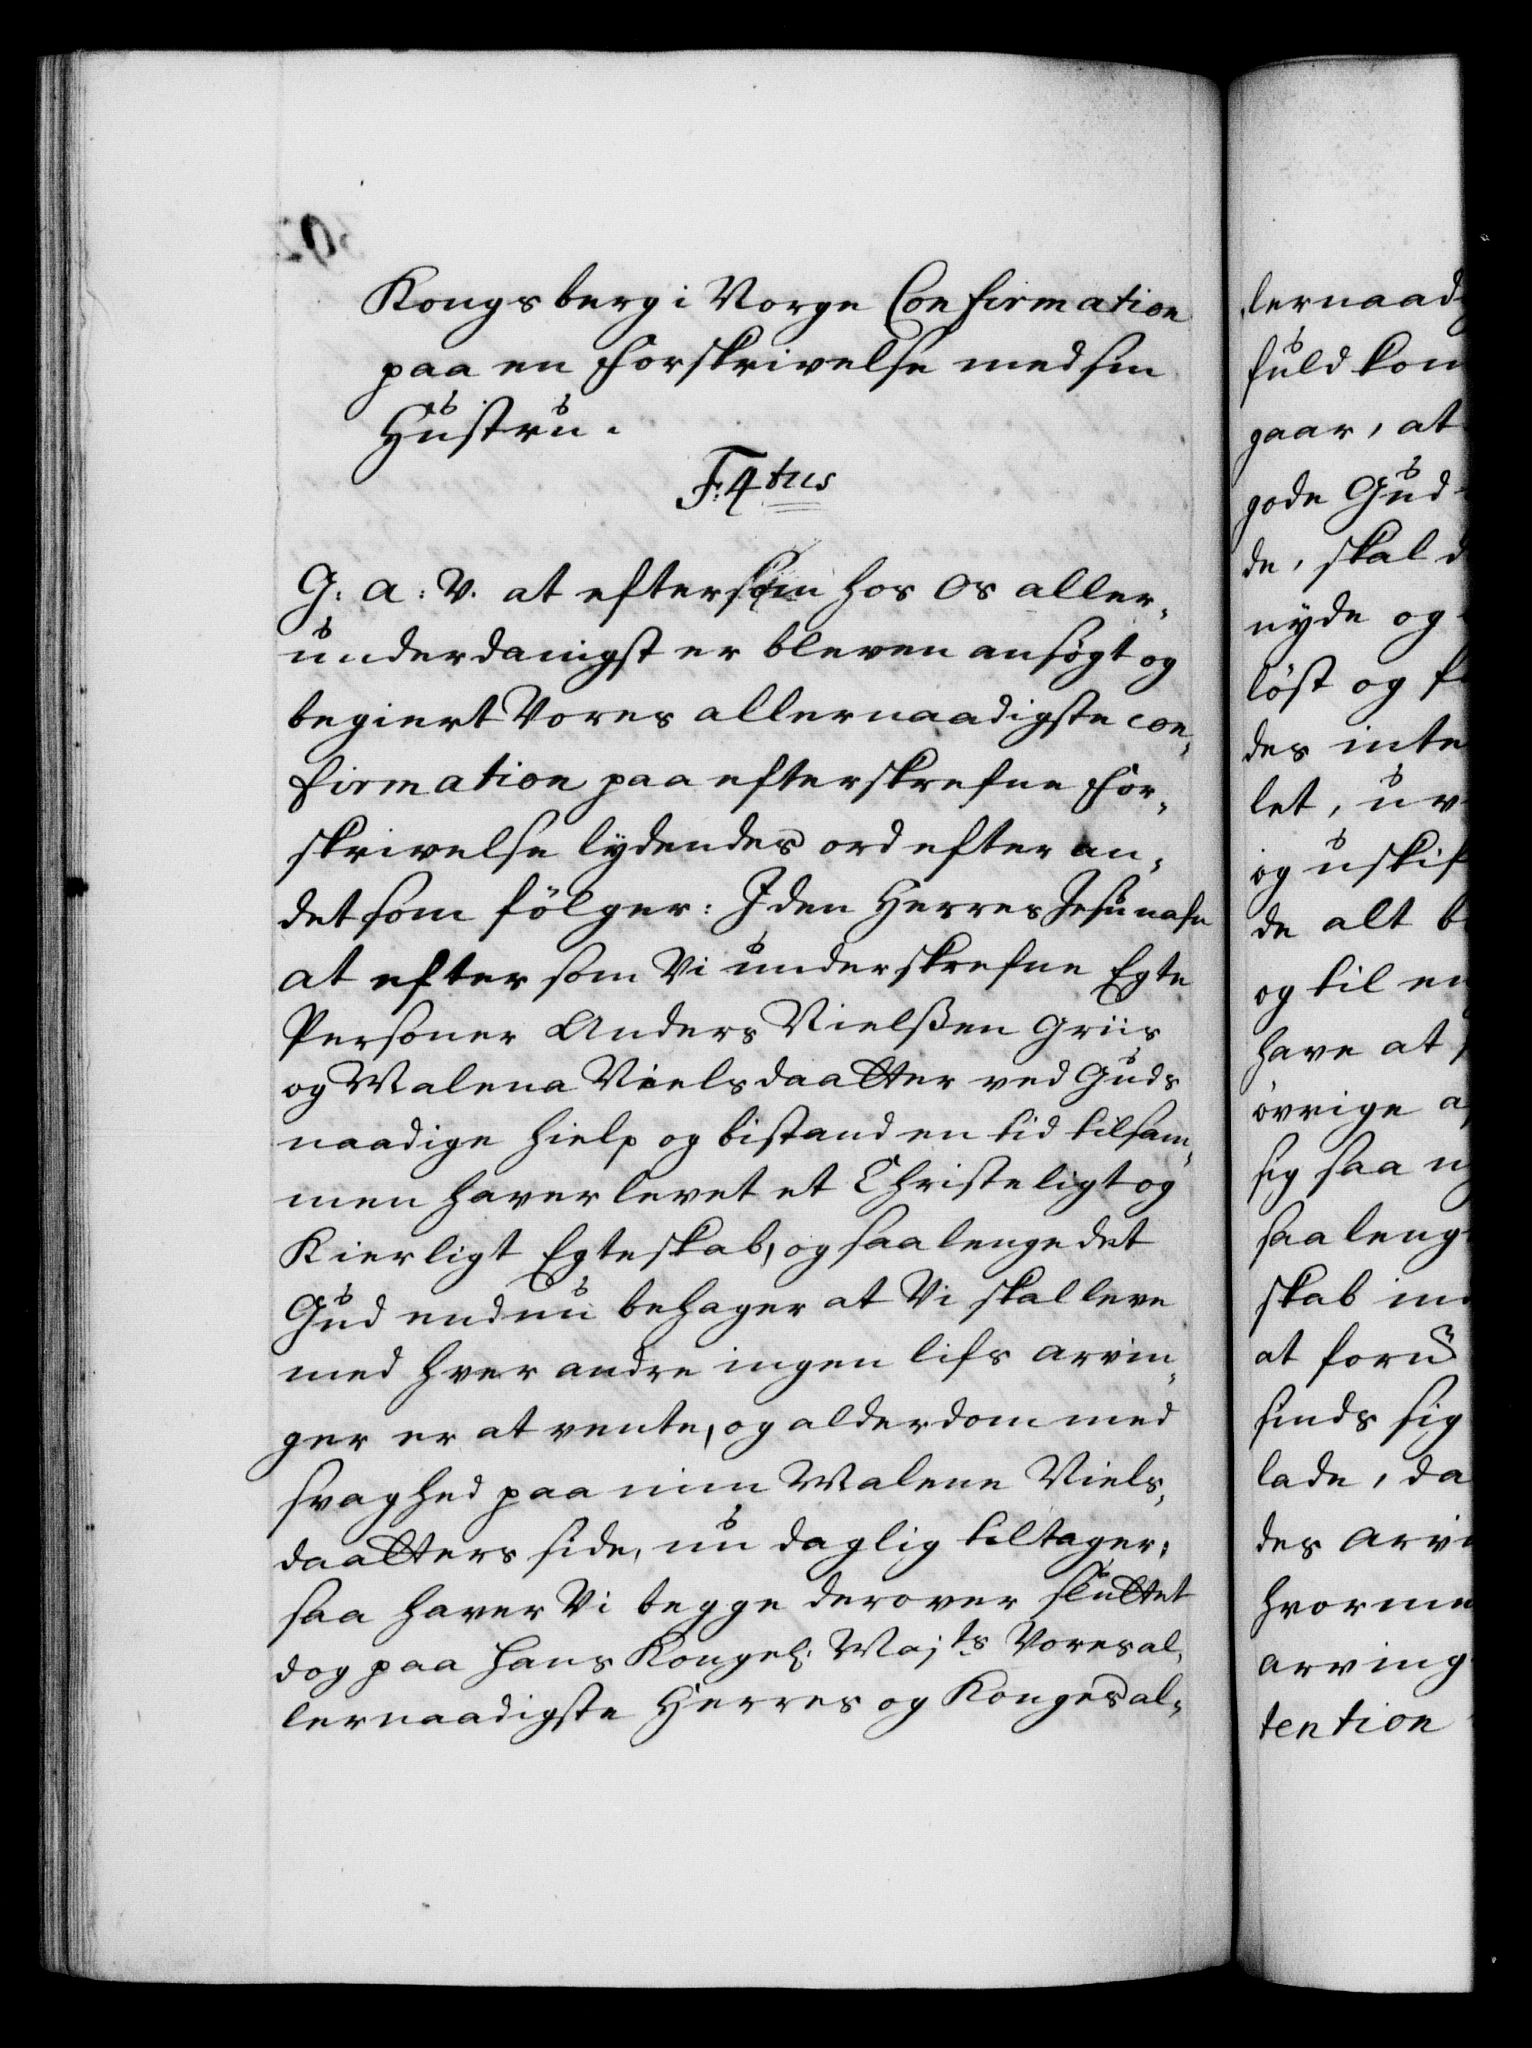 Kongsberg i Norge Confirmation
paa en Forskrivelse med sin
Hustru.
F. 4tus
G: A: V. at eftersom hos Os aller-
underdanigst er bleven ansøgt og
begiert Vores allernaadigste con-
firmation paa efterskrefne For-
skrivelse lydendes ord efter an-
det som fölger: I den Herres Jesu nafn
at efter som Vi underskrefne Egte
Personer Anders Nielsßen Griis
og Malena Nielsdaatter ved Guds
naadige hielp og bistand en tid tilsam-
men haver levet et Christeligt og
Kierligt Egteskab, og saa lenge det
Gud endnu behager at Vi skal leve
med hver andre ingen lifs arvin-
ger er at vente, og alderdom med
svaghed paa min Malene Niels-
daatters side, nu daglig tiltager;
saa haver Vi begge derover sluttet
dog paa Hans Kongel. Majts Vores al-
lernaadigste Herres og Konges al-
lernaad
fuldkom
gaar, at
gode Gud
de, skal d
nyde og
löst og f
des inte
let, uv
og uskif
de alt b
og til en
have at
övrige a
sig saa n
saa leng
skab in
at foru
finds sig
lade, da
des arvi
hvorme
arving
tention